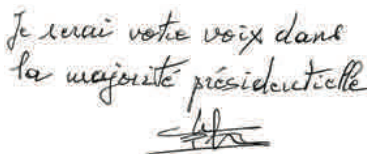 Je serai votre voix dans
la majorité présidentielle